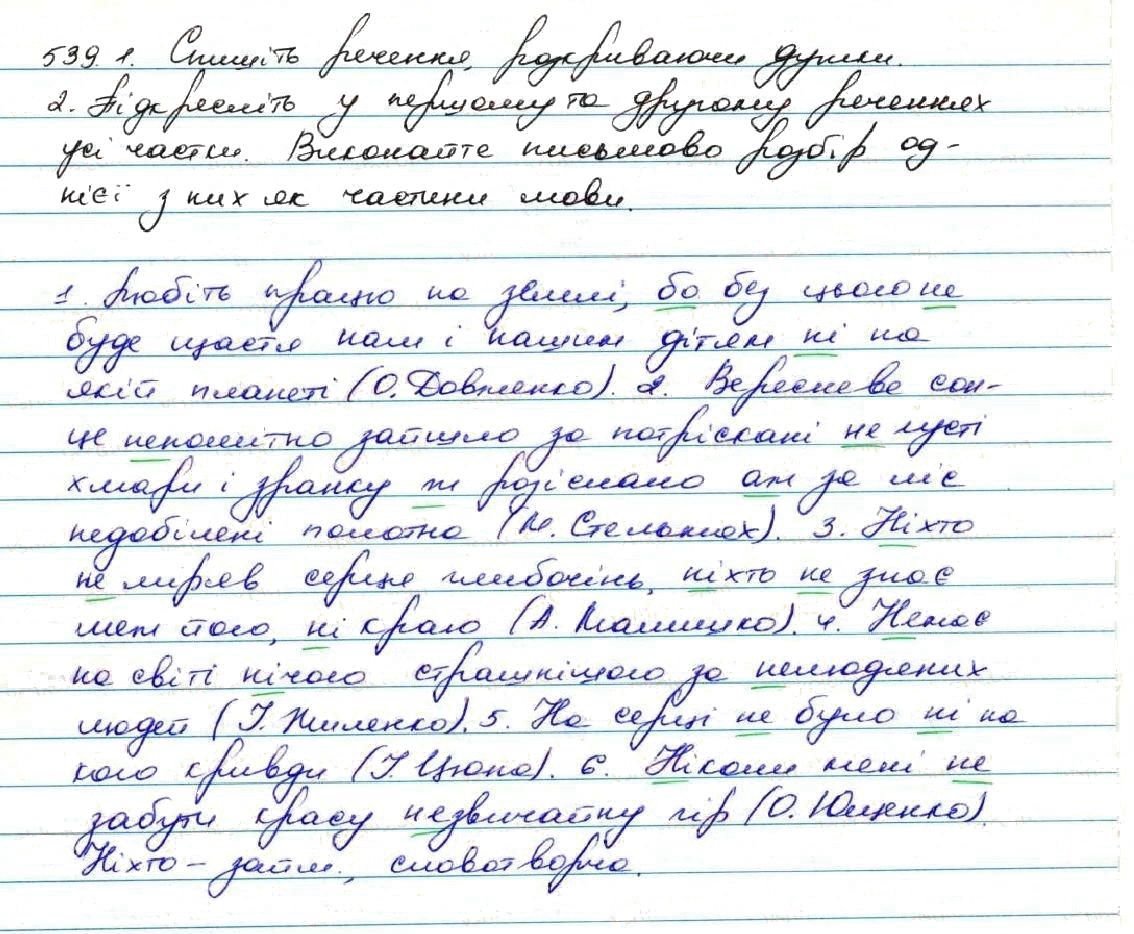 539 1. Спишіть речення, розкриваючи дужки.
2. Підкресліть у першому та другому реченнях
усі частки. Виконайте письмово розбір од-
нієї з них як частини мови.
1. Любіть працю на землі, бо без цього не
буде щастя нам і нашим дітям ні на
якій планеті (О. Довженко). 2. Вереснева сон-
це непомітно зайшло за потріскані не густі
хмари і зранку ж розіслало аж за ліс
недобілені полотна (М. Стельмах). 3. Ніхто
не міряв серце глибочінь, ніхто не знає
меж його, ні краю (А. Малишко). 4. Немає
на світі нічого страшнішого за нелюдяних
людей (І. Жиленко). 5. На серці не було ні на
кого кривди (І. Цюпа). 6. Ніколи мені не
забути красу незвичайну гір (О. Ющенко).
Ніхто – займ., словотворча.